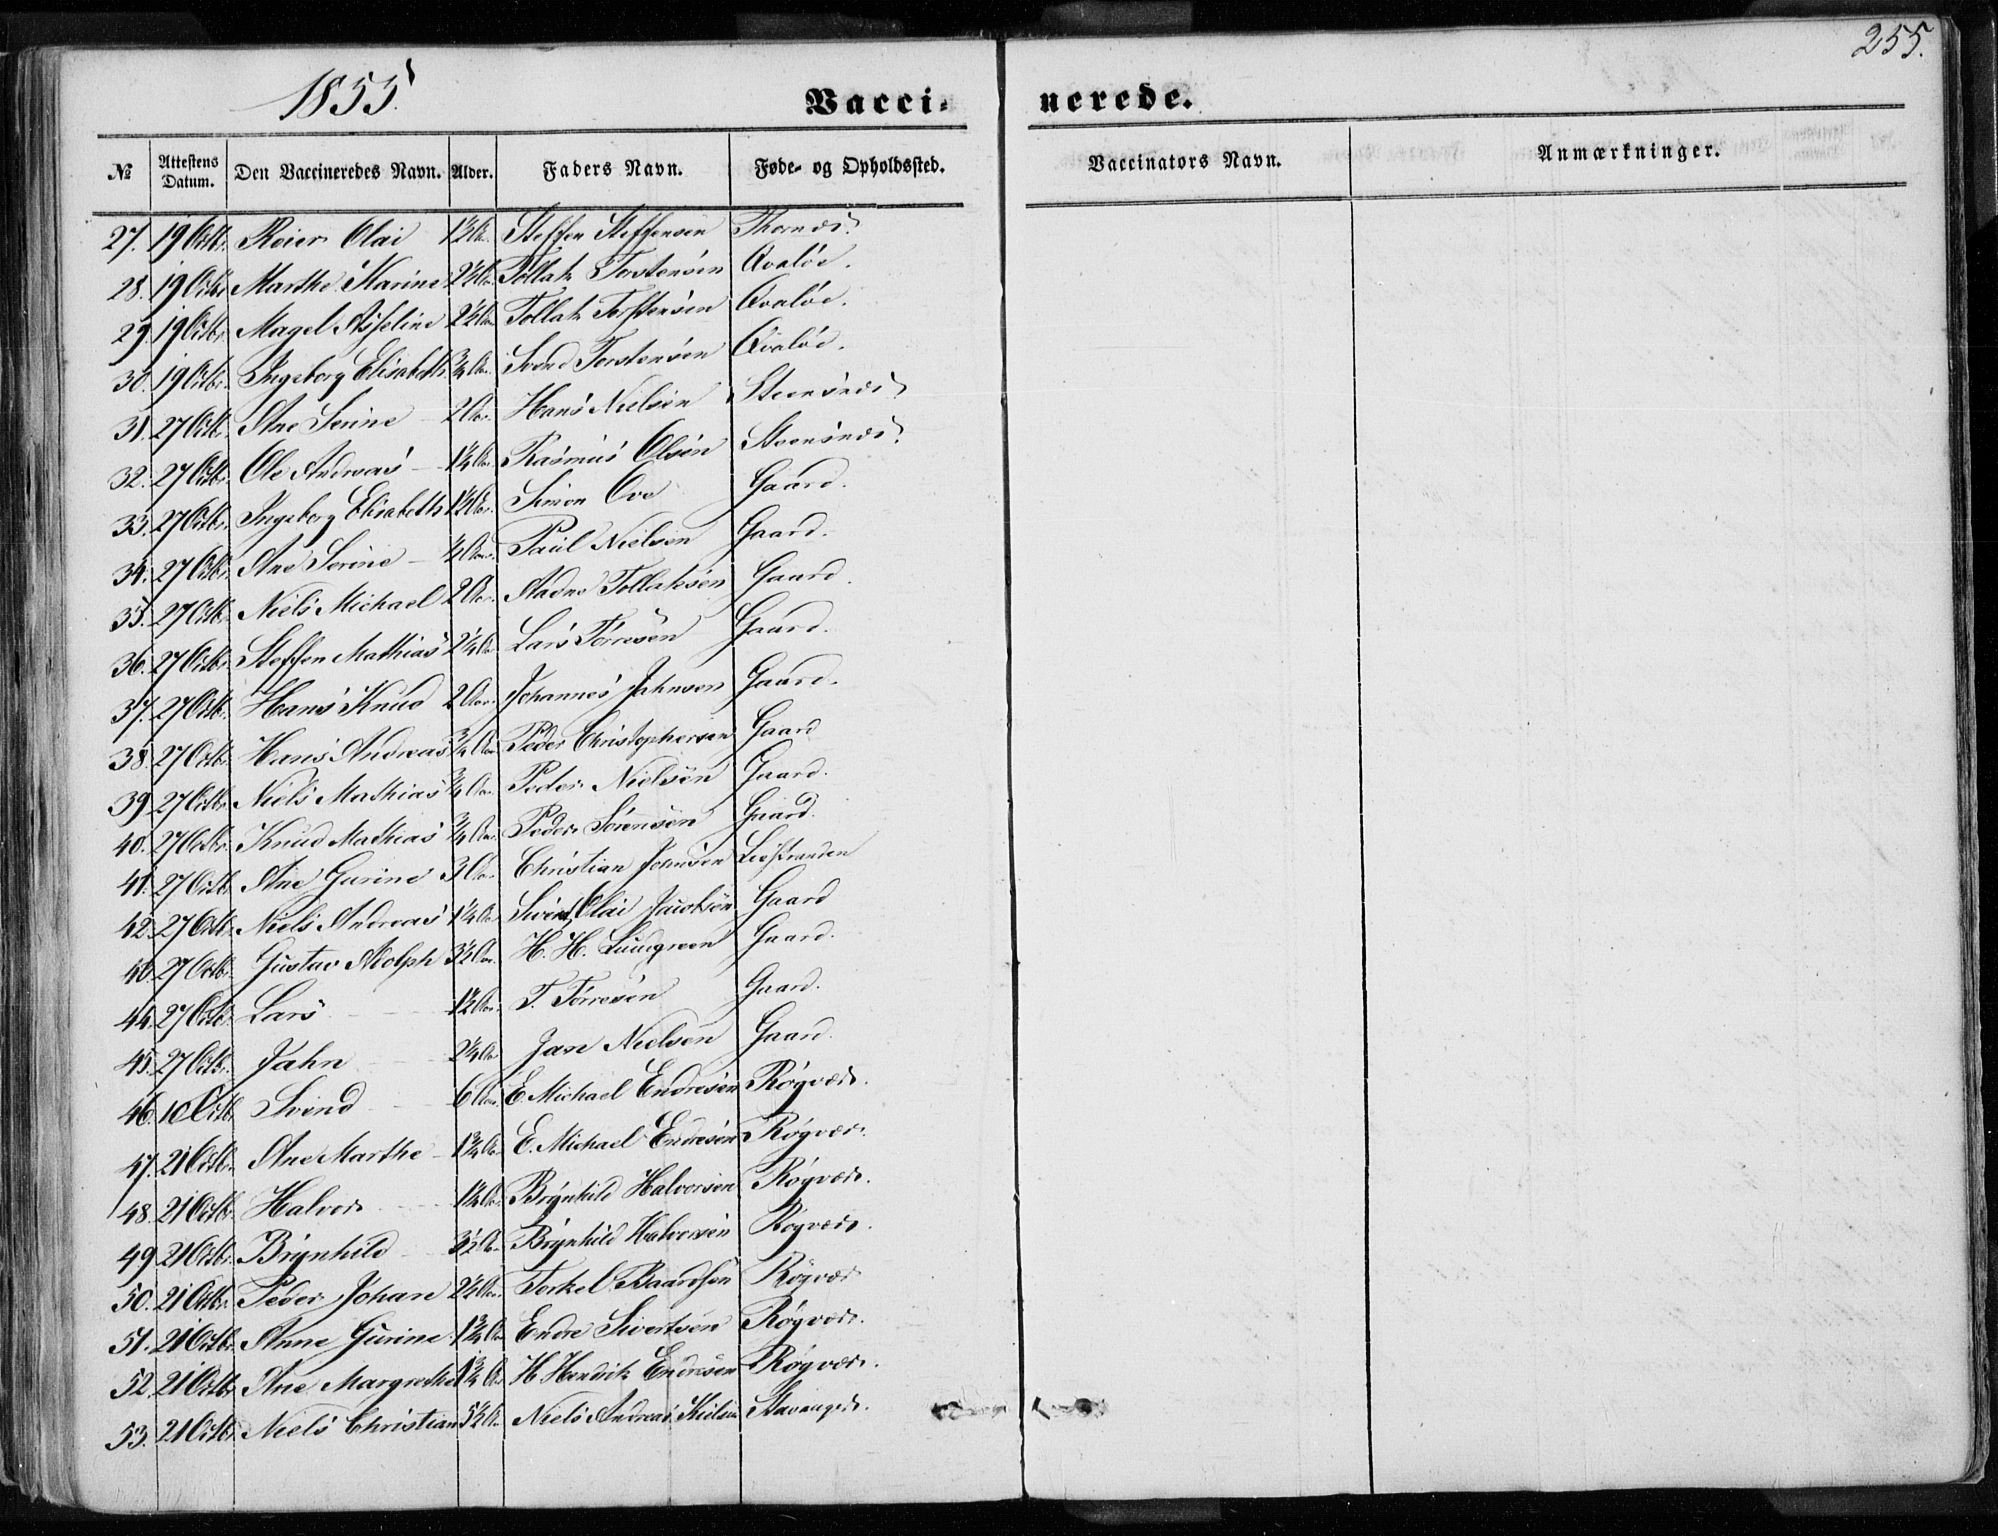 255.
1855.
Vacci- nerede.
№ Attestens Datum. Den Vaccineredes Navn. Alder. Faders Navn. Føde- og Opholdssted. Vaccinators Navn. Anmærkninger.
27. 19 Octbr. Reier Olai 1½ Aar. Steffen Steffensen Thornæs.
28. 19 Octbr. Marthe Karine Tollak Torstensen Qvaløe.
29. 19 Octbr. Magel Asseline 2½ Aar. Tollak Torstensen Qvaløe.
30. 19 Octbr. Ingeborg Elisabeth ¾ Aar. Svend Torstensen Qvaløe.
31. 27 Octbr. Ane Serine 2 Aar. Hans Nielsen Steensnæs
32. 27 Octbr. Ole Andreas 1¼ Aar. Rasmus Olsen Steensnæs.
33. 27 Octbr. Ingeborg Elisabeth Simon Ove Gaard.
34. 27 Octbr. Ane Serine Paul Nielsen Gaard.
35. 27 Octbr. Niels Michael 2 Aar. Aadne Tollaksen Gaard.
36. 27 Octbr. Steffen Mathias 2¼ Aar Lars Torresen Gaard.
37. 27 Octbr. Hans Knud 2 Aar. Johannes Jahnsen Gaard.
38. 27 Octbr. Hans Andreas ¾ Aar Peder Christophersen Gaard
39. 27 Octbr. Niels Mathias ¾ Aar. Peder Nielsen Gaard.
40. 27 Octbr. Knud Mathias ¾ Aar. Peder Sørensen Gaard.
41. 27 Octbr. Ane Gurine 3 Aar. Christian
42. 27 Octbr. Niels Andreas 1¼ Aar Svend Olai Jacobsen Gaard
43. 27 Octbr. Gustav Adolph 3½ Aar. H. H. Gaard.
44. 27 Octbr. Lars 1½ Aar. T. Torresen Gaard.
45. 27 Octbr. Jahn 2¼ Aar Jan Nielsen Gaard.
46. 10 Octb. Svend 6 Aar. E. Michael Endresen Røgvær.
47. 21 Octbr. Ane Marthe 1¾ Aar E. Michael Endresen Røgvær.
48. 21 Octbr. Halvor Brynhild Halvorsen Røgvær.
49. 21 Octbr. Brynhild 3½ Aar. Brynhild Halvorsen Røgvær.
50. 21 Octbr. Peder Johan 2¼ Aar. Torkel Baardsen Røgvær
51. 21 Octbr. Anne Gurine 1¾ Aar Endre Sivertsen Røgvær.
52. 21 Octbr. Ane Margrethe 1¾ Aar H Hendrik Endresen Røgvær.
53. 21 Octbr. Niels Christian 5½ Aar Niels Andreas Nielsen Stavanger.